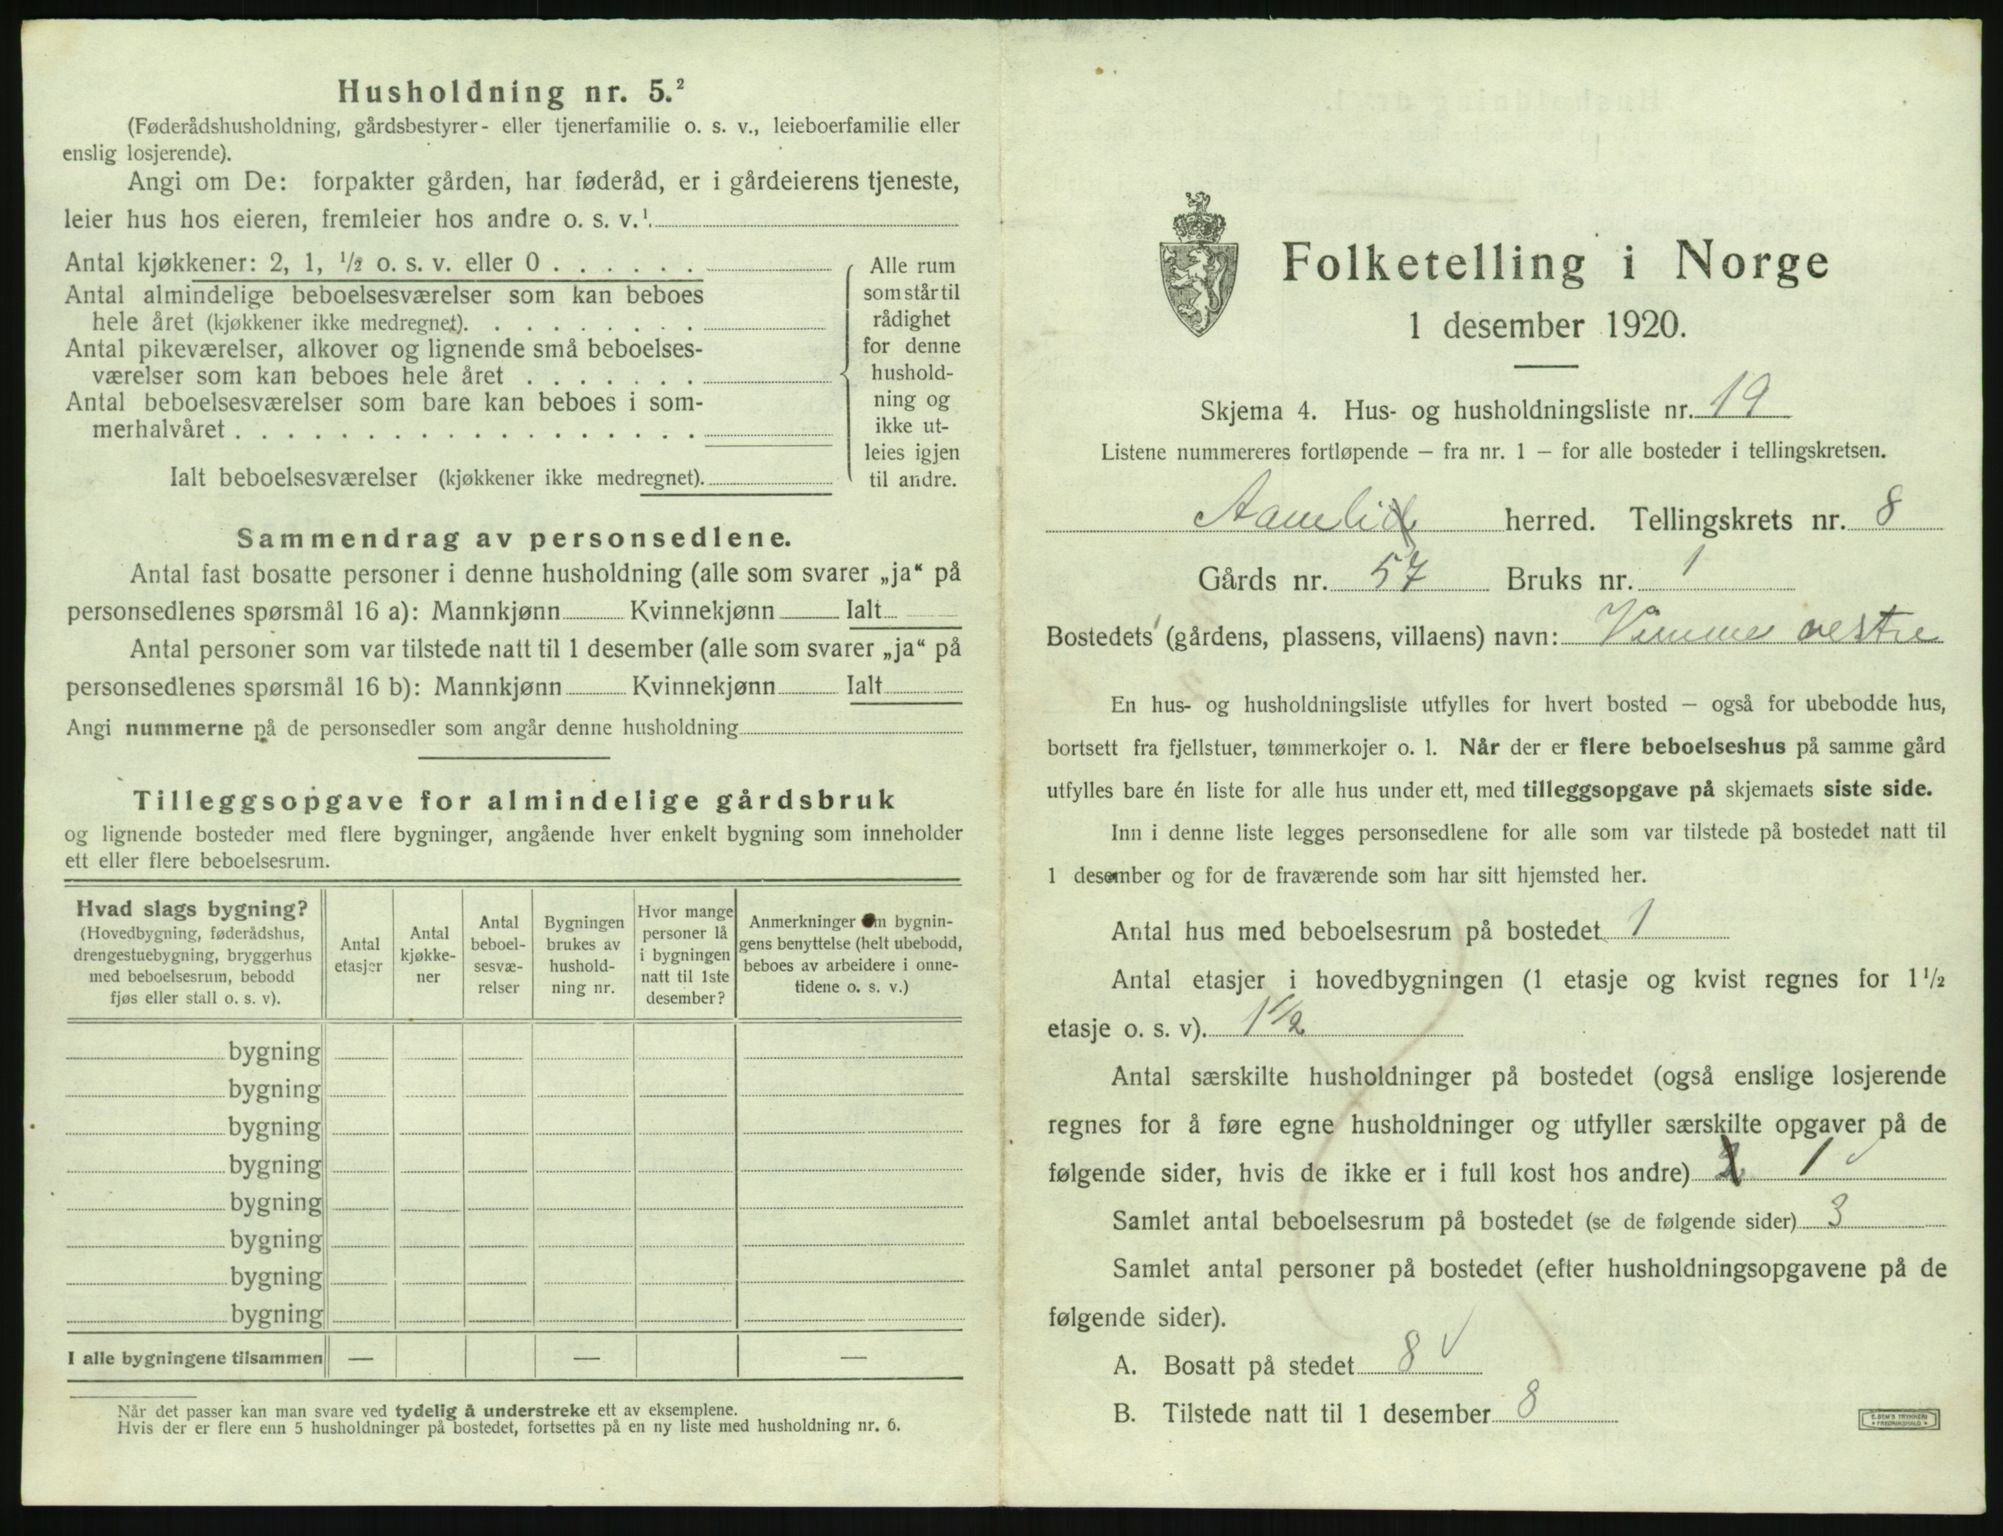 Husholdning nr. 5.²
(Føderådshusholdning, gårdsbestyrer- eller tjenerfamilie o. s. v., leieboerfamilie eller
enslig losjerende).
Angi om De: forpakter gården, har føderåd, er i gårdeierens tjeneste,
leier hus hos eieren, fremleier hos andre o. s. v.¹
Antal kjøkkener: 2, 1, ½ o. s. v. eller 0 . . . . . .
Antal almindelige beboelsesværelser som kan beboes
hele året (kjøkkener ikke medregnet). . . . . . . . .
Antal pikeværelser, alkover og lignende små beboelses-
værelser som kan beboes hele året . . . . . . .
Antal beboelsesværelser som bare kan beboes i som-
merhalvåret . . . . . . . . . . . . . . . . . .
Ialt beboelsesværelser (kjøkkener ikke medregnet).
Alle rum
som står til
rådighet
for denne
hushold-
ning og
ikke ut-
leies igjen
til andre.
Sammendrag av personsedlene.
Antal fast bosatte personer i denne husholdning (alle som svarer „ja“ på
personsedlenes spørsmål 16 a): Mannkjønn Kvinnekjønn Ialt
Antal personer som var tilstede natt til 1 desember (alle som svarer „ja“ på
personsedlenes spørsmål 16 b): Mannkjønn Kvinnekjønn Ialt
Angi nummerne på de personsedler som angår denne husholdning
Tilleggsopgave for almindelige gårdsbruk
og lignende bosteder med flere bygninger, angående hver enkelt bygning som inneholder
ett eller flere beboelsesrum.
Hvad slags bygning?
(Hovedbygning, føderådshus,
drengestuebygning, bryggerhus
med beboelsesrum, bebodd
fjøs eller stall o. s. v).
Antal
etasjer
Antal
kjøkke-
ner
Antal
beboel-
sesvæ-
relser
Bygningen
brukes av
hushold-
ning nr.
Hvor mange
personer lå
i bygningen
natt til 1ste
desember?
Anmerkninger om bygnin-
gens benyttelse (helt ubebodd,
beboes av arbeidere i onne-
tidene o. s. v.)
bygning
bygning
bygning
bygning
bygning
bygning
bygning
bygning
I alle bygningene tilsammen — — —
Når det passer kan man svare ved tydelig å understreke ett av eksemplene.
Hvis der er flere enn 5 husholdninger på bostedet, fortsettes på en ny liste med husholdning nr. 6.
Folketelling i Norge
1 desember 1920.
Skjema 4. Hus- og husholdningsliste nr. 19
Listene nummereres fortløpende – fra nr. 1 – for alle bosteder i tellingskretsen.
Aamlid herred. Tellingskrets nr. 8
Gårds nr. 57 Bruks nr. 1
Bostedets (gårdens, plassens, villaens) navn: Vimme vestre
En hus- og husholdningsliste utfylles for hvert bosted – også for ubebodde hus,
bortsett fra fjellstuer, tømmerkojer o. l. Når der er flere beboelseshus på samme gård
utfylles bare én liste for alle hus under ett, med tilleggsopgave på skjemaets siste side.
Inn i denne liste legges personsedlene for alle som var tilstede på bostedet natt til
1 desember og for de fraværende som har sitt hjemsted her.
Antal hus med beboelsesrum på bostedet 1
Antal etasjer i hovedbygningen (1 etasje og kvist regnes for 1 ½
etasje o. s. v). 1½
Antal særskilte husholdninger på bostedet (også enslige losjerende
regnes for å føre egne husholdninger og utfyller særskilte opgaver på de
følgende sider, hvis de ikke er i full kost hos andre) 2 1 ✓
Samlet antal beboelsesrum på bostedet (se de følgende sider) 3
Samlet antal personer på bostedet (efter husholdningsopgavene på de
følgende sider).
A. Bosatt på stedet 8 ✓
B. Tilstede natt til 1 desember 8
E. SEM'S TRYKKERI
FREDRIKSHALD